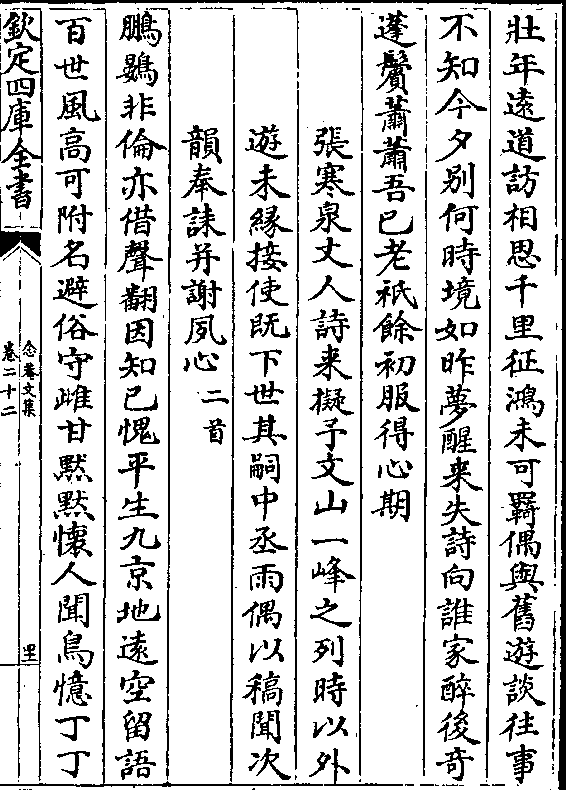 壯年遠道訪相思千里征鴻未可羇偶與舊遊談往事
不知今夕别何時境如昨夢醒来失詩向誰家醉後竒
蓬鬢蕭蕭吾已老祇餘初服得心期
張寒泉丈人詩来擬予文山一峰之列時以外
遊未縁接使既下世其嗣中丞雨偶以稿聞次
韻奉誄并謝夙心二首
鵬鷃非倫亦借聲翻因知已愧平生九京地遠空留語
百世風高可附名避俗守雌甘黙黙懐人聞鳥憶丁丁
欽定四庫全書
念菴文集
卷二十二